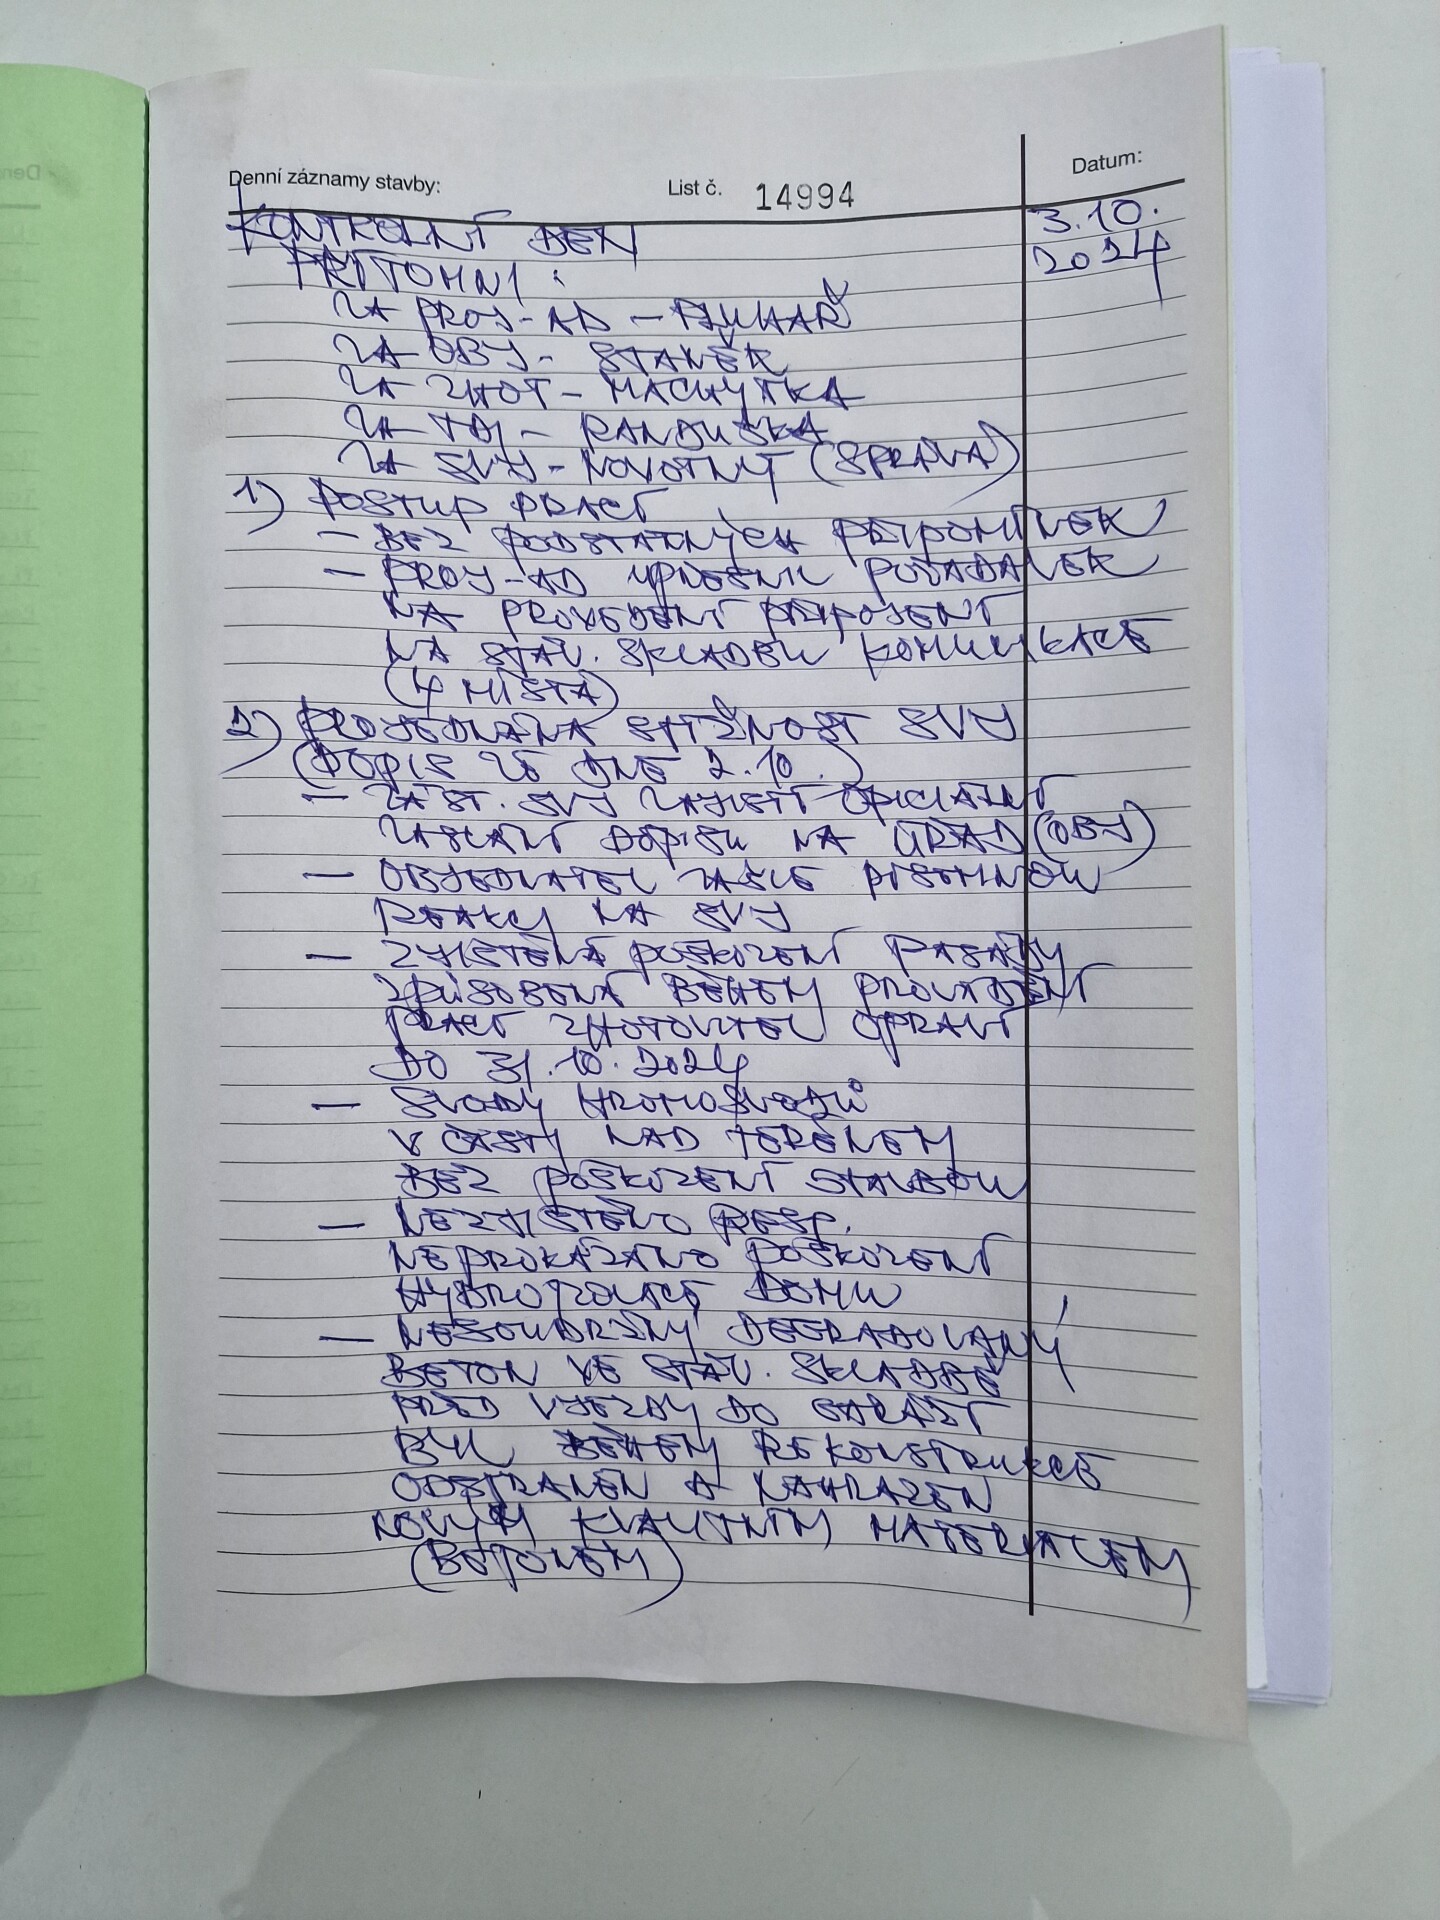 Denní záznamy stavby: List č. 14994 Datum:
KONTROLNÍ DEN 3.10.
PŘÍTOMNI: 2024
ZA PROJ-AD -
ZA OBJ - STANĚK
ZA ZHOT - MACHYTKA
ZA TDI - RANDUŠKA
ZA SVJ - NOVOTNÝ (SPRÁVA)
1) POSTUP PRACÍ
- BEZ PODSTATNÝCH PŘIPOMÍNEK
- PROJ-AD UPŘESNIL POŽADAVEK
NA PROVEDENÍ PŘIPOJENÍ
NA STÁV. SKLADBU KOMUNIKACE
(4 MÍSTA)
2) PROJEDNÁNA STÍŽNOST SVJ
(DOPIS ZE DNE 2.10.)
- ZÁST. SVJ ZAJISTÍ OFICIÁLNÍ
ZASLÁNÍ DOPISU NA ÚŘAD (OBJ)
- OBJEDNATEL ZAŠLE PÍSEMNOU
REAKCI NA SVJ
- ZJIŠTĚNÁ POŠKOZENÍ FASÁDY
ZPŮSOBENÁ BĚHEM PROVÁDĚNÍ
PRACÍ ZHOTOVITEL OPRAVÍ
DO 31.10.2024
- SVODY HROMOSVODŮ
V ČÁSTI NAD TERÉNEM
BEZ POŠKOZENÍ STAVBOU
- NEZJIŠTĚNO RESP.
NEPROKÁZÁNO POŠKOZENÍ
HYDROIZOLACE DOMU
- NESOUDRŽNÝ DEGRADOVANÝ
BETON VE STÁV. SKLADBĚ
PŘED VJEZDY DO GARÁŽÍ
BYL BĚHEM REKONSTRUKCE
ODSTRANĚN A NAHRAZEN
NOVÝM KVALITNÍM MATERIÁLEM
(BETONEM)